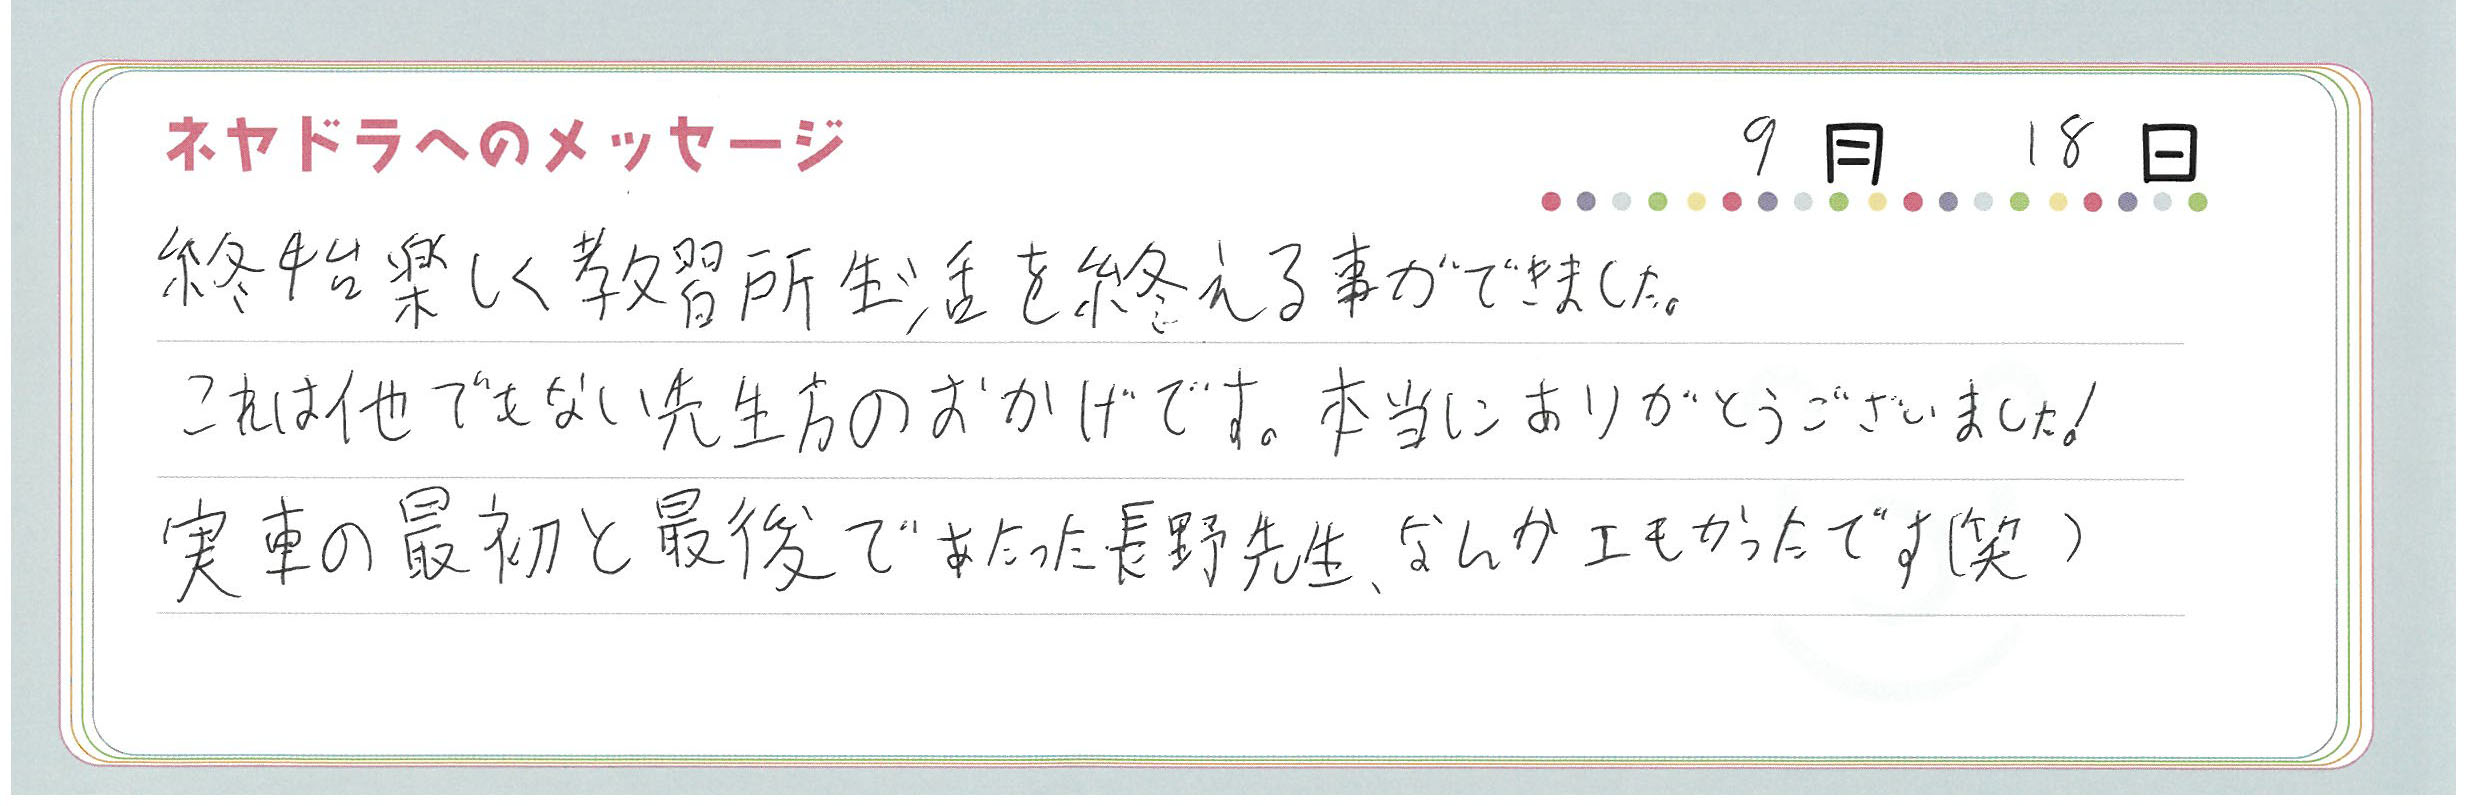 ネヤドラへのメッセージ
9月 18日
終始楽しく教習所生活を終える事ができました。
これは他でもない先生方のおかげです。本当にありがとうございました!
実車の最初と最後であたった長野先生、なんかエモかったです(笑)